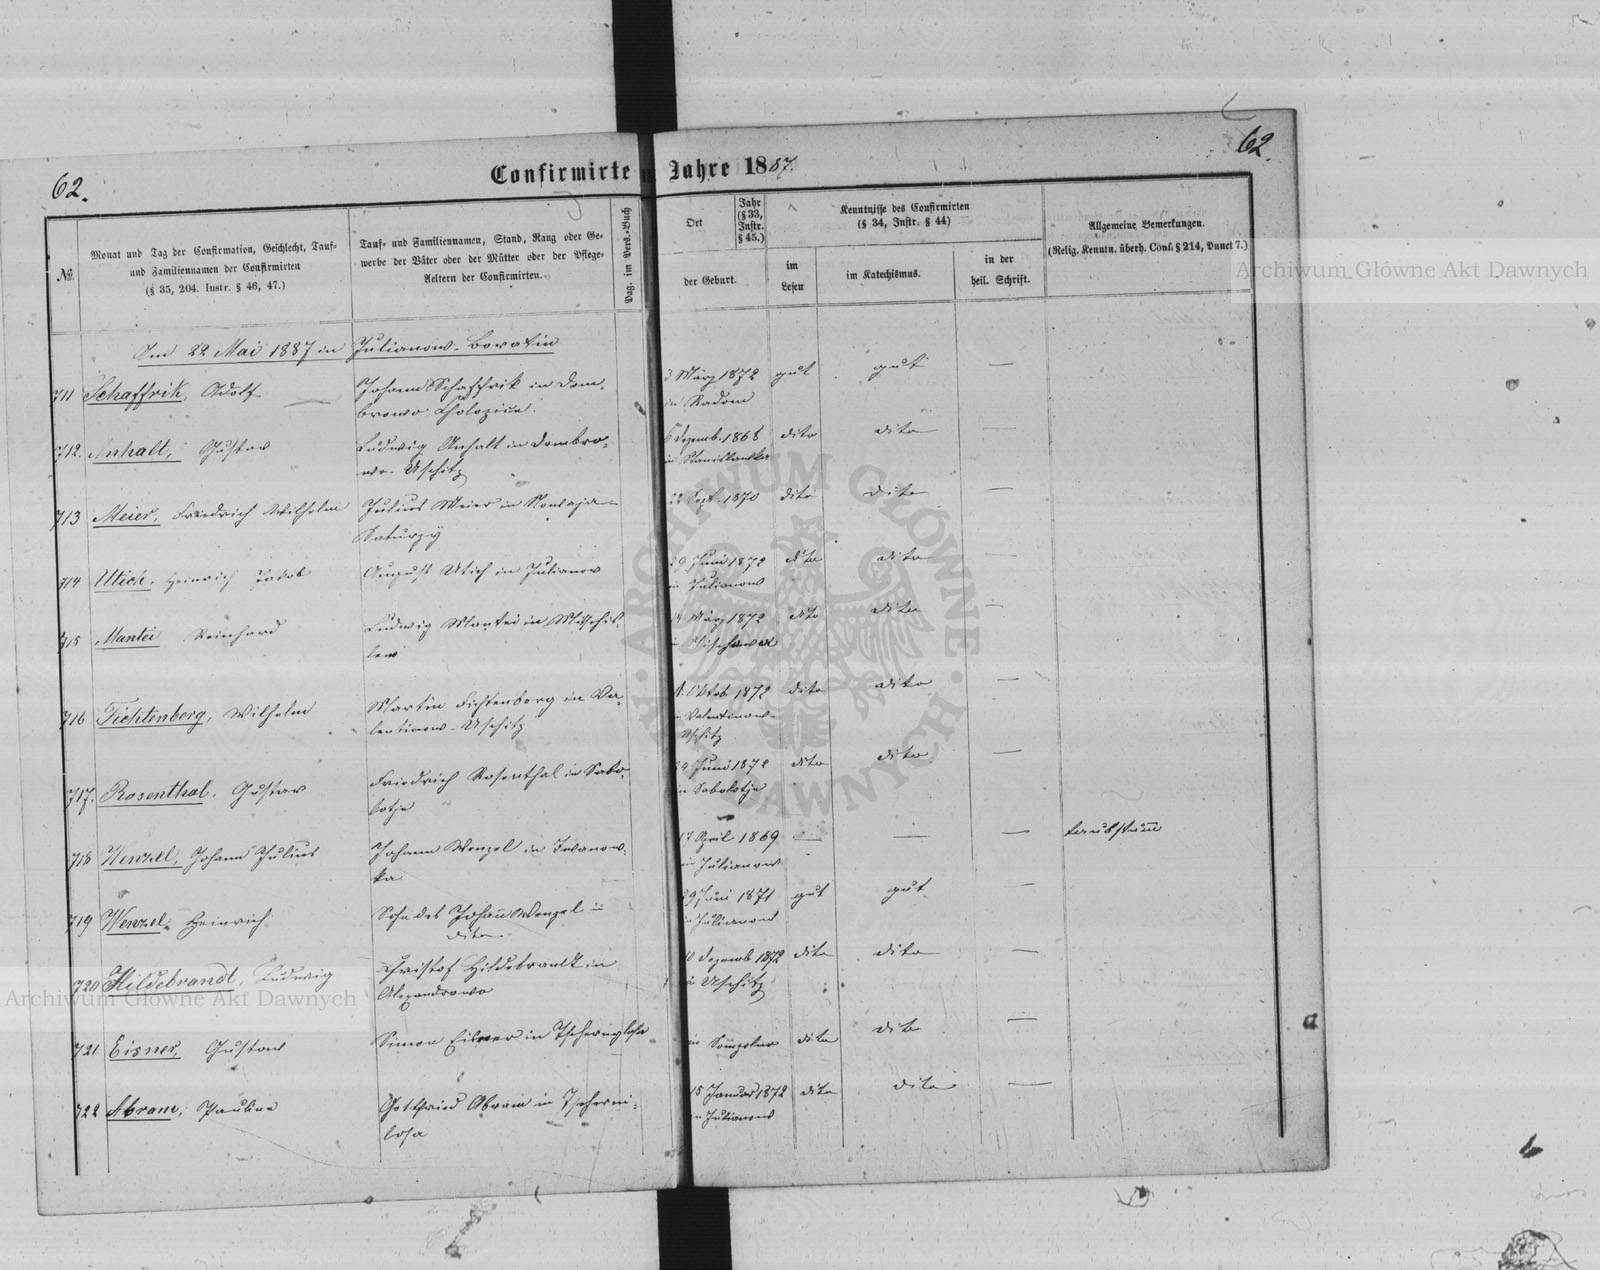 62.
62.
Confirmirte im Jahre 1887.
№
Monat und Tag der Confirmation, Geschlecht, Tauf-
und Familiennamen der Confirmirten
(§ 35, 204. Instr. § 46, 47.)
Tauf- und Familiennamen, Stand, Rang oder Ge-
werbe der Väter oder der Mütter oder der Pflege-
Aeltern der Confirmirten.
Pag. im Pers.-Buch
Ort
Jahr
(§ 33,
Instr.
§ 45.)
der Geburt.
Kenntnisse des Confirmirten
(§ 34, Instr. § 44)
im
Lesen
im Katechismus.
in der
heil. Schrift.
Allgemeine Bemerkungen.
(Relig. Kenntn. überh. Conf. § 214, Punct 7.)
Am 22 Mai 1887 in Julianow-Boratin
711 Schaffrik, Adolf Johann Schaffrik in Dom- 3 März 1872 gut gut —
browo in Radom
712. Anhalt, Gustav Ludwig Anhalt in Dombro- 6 Dezemb. 1868 dito dito —
wo-Uschitz in Stanislawka
713 Meier, Friedrich Wilhelm Julius Meier in 22 Sept. 1870 dito dito —
Saturzy
714 Utich, Heinrich Jakob August Utich in Julianow 29 Juni 1872 dito dito —
in Julianow
715 Mantei Reinhard Ludwig Mantei in 14 März 1872 dito dito —
716 Fichtenberg, Wilhelm Martin Fichtenberg in Va- Oktob 1872 dito dito —
lentinow-Uschitz in Valentinow-
Uschitz
717. Rosenthal, Gustav Friedrich Rosenthal in Sabo- 24 Juni 1872 dito dito —
lotje in Sabolotje
718 Wenzel, Johann Julius Johann Wenzel in Iwanow- 17 April 1869 — — — taubstumm
ka in Julianow
719 Wenzel, Heinrich Sohn des Johann Wenzel in 29 Juni 1871 gut gut —
dito in Julianow
720 Hildebrandt, Ludwig Christof Hildebrandt in 10 Dezemb 1872 dito dito —
Alexandrowo in Uschitz
721. Eisner, Gustav Simon Eisner in in Sompolno dito dito —
722 Abram, Pauline Gottfried Abram in Tscherni- 15 Januar 1872 dito dito —
losa in Julianow
Archiwum Główne Akt Dawnych
Archiwum Główne Akt Dawnych
ARCHIWUM GŁÓWNE AKT DAWNYCH